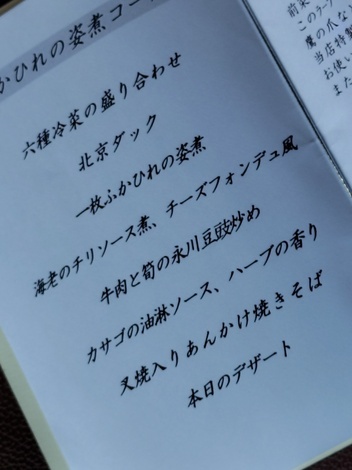 かひれの姿煮コー
六種冷菜の盛り合わせ
北京ダック
一枚ふかひれの姿煮
海老のチリソース煮、チーズフォンデュ風
牛肉と筍の永川豆豉炒め
カサゴの油淋ソース、ハーブの香り
叉焼入りあんかけ焼きそば
本日のデザート
前菜
このラー
鷹の爪な
当店特製
お使い
また